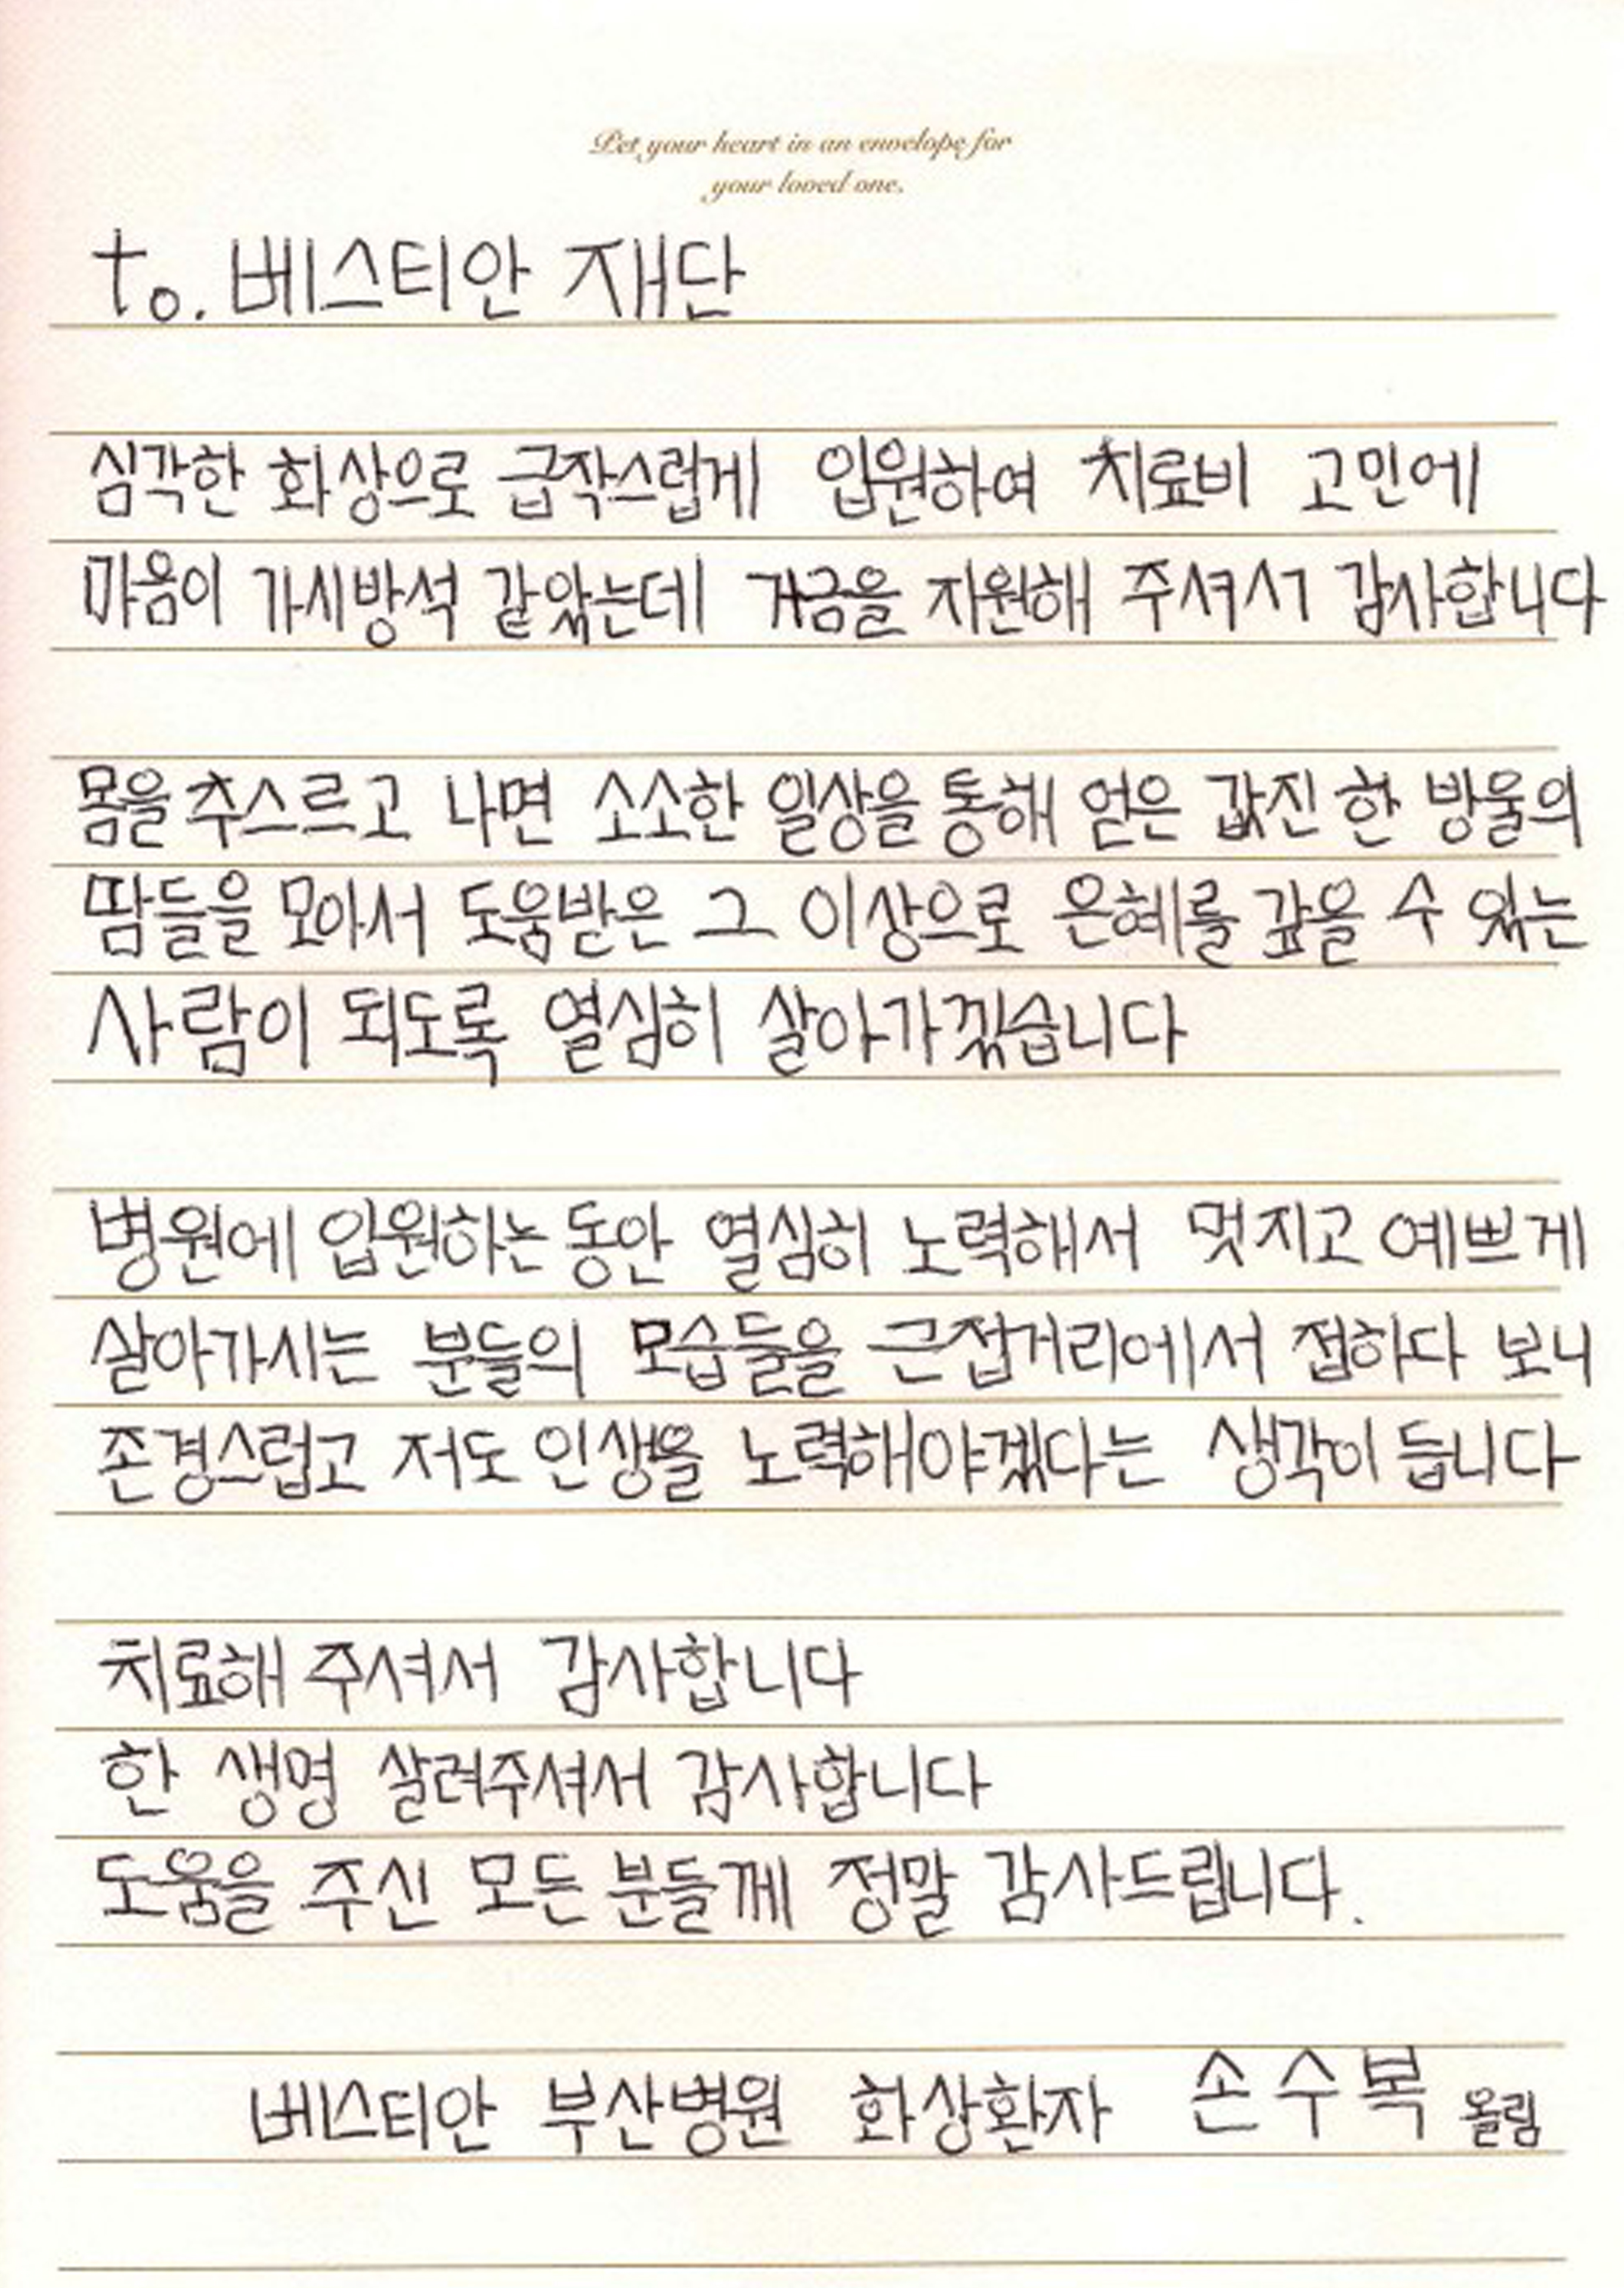 Pet your heart in an envelope for
your loved one.
to. 베스티안 재단
심각한 화상으로 급작스럽게 입원하여 치료비 고민에
마음이 가시방석 같았는데 거금을 지원해 주셔서 감사합니다
몸을 추스르고 나면 소소한 일상을 통해 얻은 값진 한 방울의
땀들을 모아서 도움받은 그 이상으로 은혜를 갚을 수 있는
사람이 되도록 열심히 살아가겠습니다
병원에 입원하는 동안 열심히 노력해서 멋지고 예쁘게
살아가시는 분들의 모습들을 근접거리에서 접하다 보니
존경스럽고 저도 인생을 노력해야겠다는 생각이 듭니다
치료해 주셔서 감사합니다
한 생명 살려주셔서 감사합니다
도움을 주신 모든 분들께 정말 감사드립니다.
베스티안 부산병원 화상환자 손수복 올림